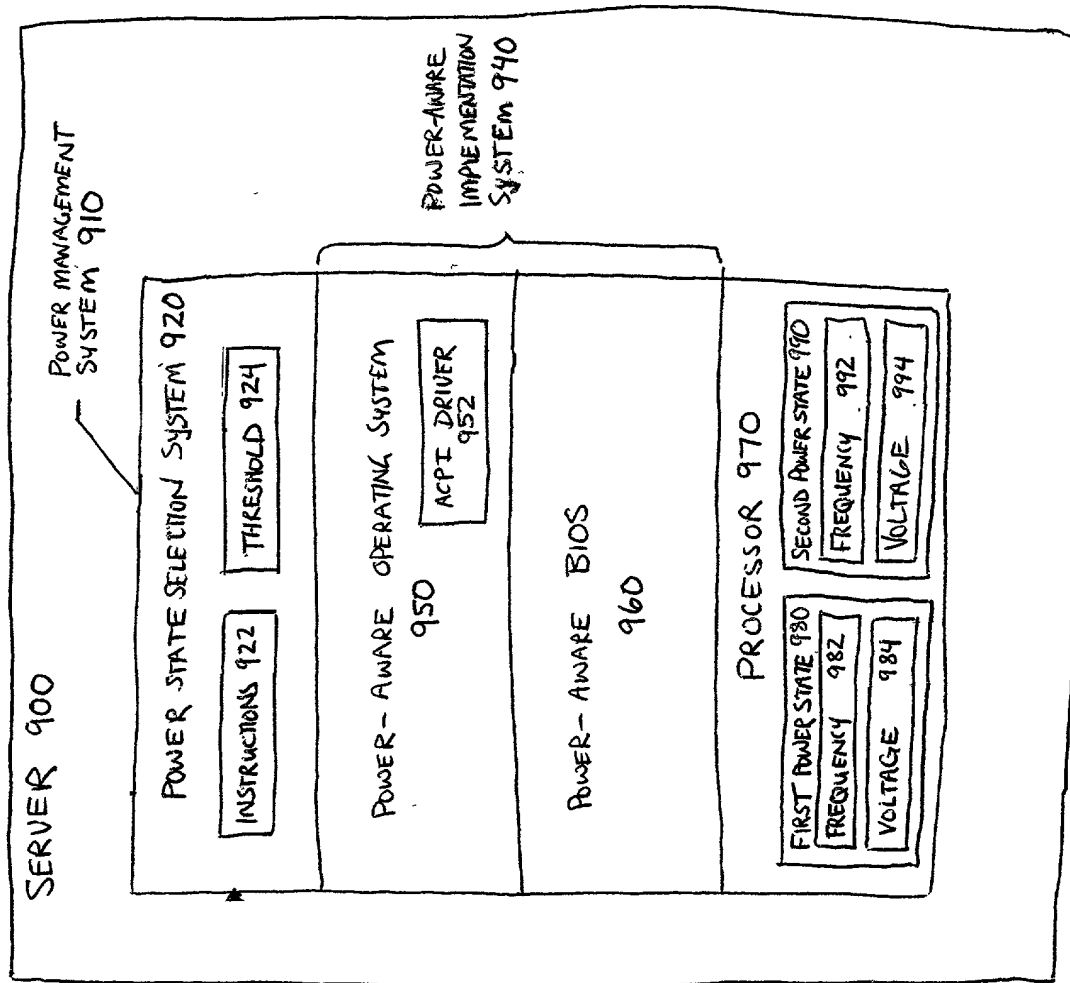 SERVER 900
POWER MANAGEMENT
SYSTEM 910
POWER STATE SELECTION SYSTEM 920
INSTRUCTIONS 922
THRESHOLD 924
POWER-AWARE
IMPLEMENTATION
SYSTEM 940
POWER-AWARE OPERATING SYSTEM
950
ACPI DRIVER
952
POWER-AWARE BIOS
960
PROCESSOR 970
FIRST POWER STATE 980
FREQUENCY 982
VOLTAGE 984
SECOND POWER STATE 990
FREQUENCY 992
VOLTAGE 994